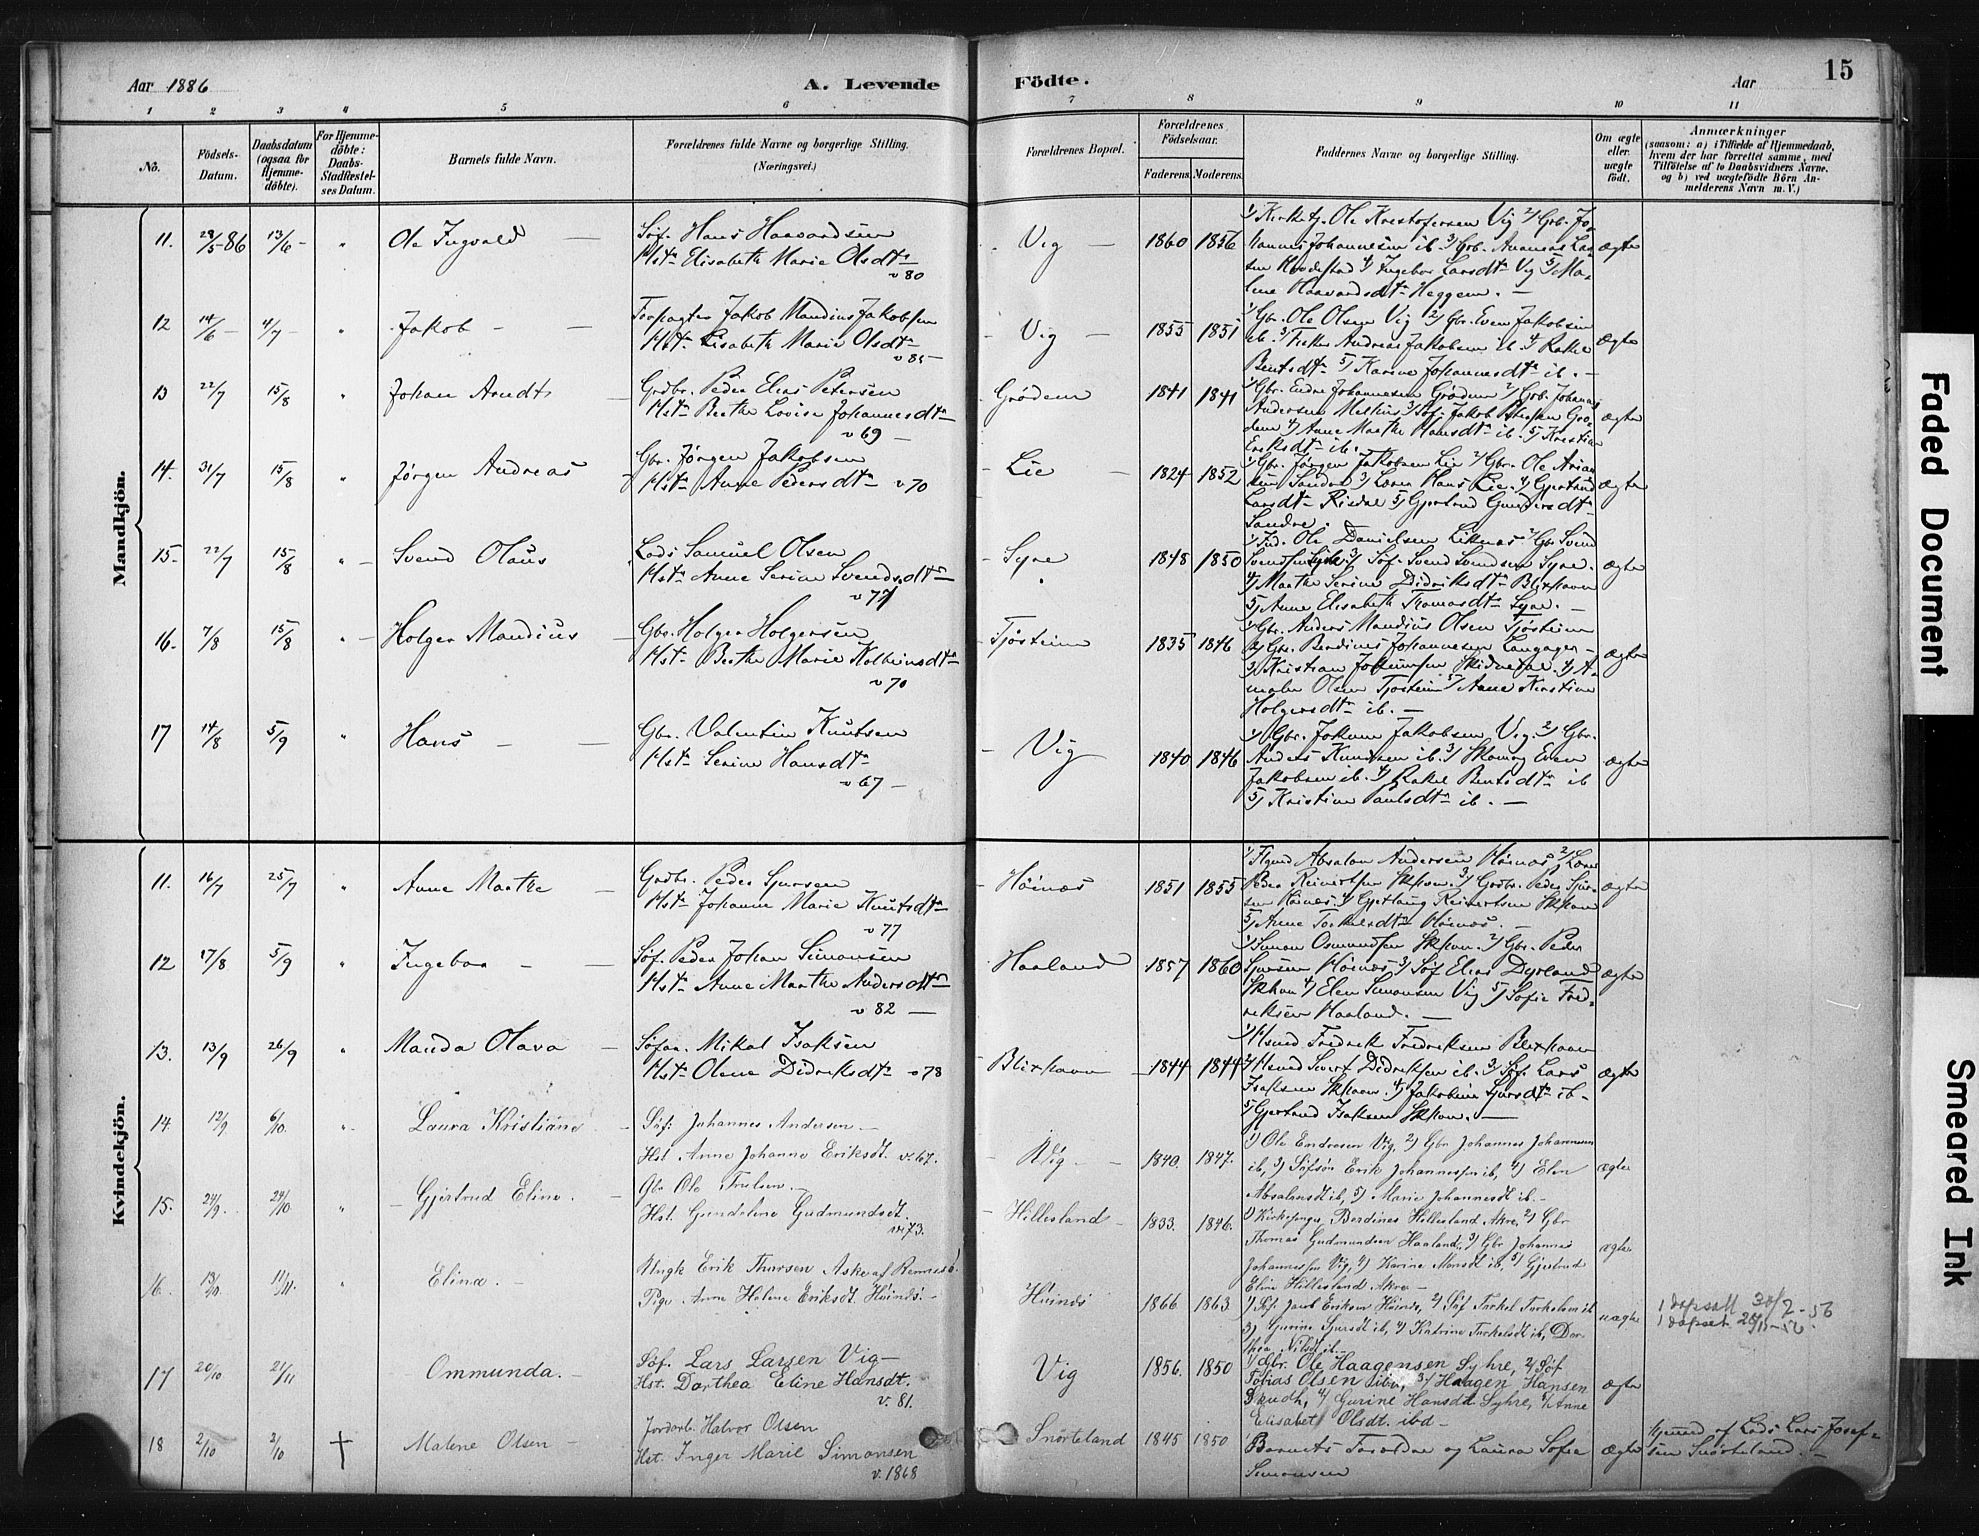 Aar 1886
A. Levende Födte.
Aar
15
1 2 3 4 5 6 7 8 9 10 11
No.
Födsels-Datum.
Daabsdatum (ogsaa for Hjemmedöbte).
For Hjemmedöbte: Daabs-Stadfæstelses Datum.
Barnets fulde Navn.
Forældrenes fulde Navne og borgerlige Stilling. (Næringsvei.)
Forældrenes Bopæl.
Forældrenes Födselsaar.
Faderens Moderens
Faddernes Navne og borgerlige Stilling.
Om ægte eller uægte födt.
Anmærkninger
(saasom: a) i Tilfælde af Hjemmedaab,
hvem der har forrettet samme, med
Tilföielse af to Daabsvidners Navne,
og b) ved uægtefödte Börn Anmelderens Navn m. V.)
Mandkjön.
11. 28/5-86 13/6 - " Ole Ingvald
Söf. Hans Haavardsen
Hst. Elisabeth Marie Olsdtr
v 80
Vig 1860 1856
1) Kirketj. Ole Kristofersen Vig 2) Gbr. Johannes Johannesen ib. 3) Gbr. Ananias Larsen 4) Ingebor Larsdtr Vig 5) Malene Haavardsdtr Heggem.
ægte
12 14/6 - 4/7 - " Jakob
Jakob Mandius Jakobsen
Hst. Elisabeth Marie Olsdtr
v 85
Vig 1855 1851
1) Gbr. Ole Olsen Vig 2) Gbr. Even Jakobsen ib. 3) Andreas Jakobsen ib. 4) Rakel Bentsdtr 5) Karine Johannesdtr ib.
ægte
13 22/7 15/8 " Johan Arndt
Grdbr. Peder Elias Petersen
Hst. Berthe Lovise Johannesdtr
v 69
Grödem 1841 1841
1) Gbr. Endre Johannesen Grödem 2) Gbr. Johannes Andersen 3) Söf. Jakob Grödem 4) Anne Marthe Hansdtr ib. 5) Kristine Eriksdtr ib.
ægte
14. 31/7 15/8 " Jörgen Andreas
Gbr. Jörgen Jakobsen
Hst. Anne Pedersdtr v 70
Lie 1824 1852
1) Gbr. Jörgen Jakobsen Lie 2) Gbr. Ole Sandve 3) Lærer Hans Lie. 4) Gjertrud Larsdtr 5) Gjertrud Gundersdtr Sandve.
ægte
15. 22/7 15/8 " Svend Olaus
Lods Samuel Olsen
Hst. Anne Serine Svendsdtr
v 77
Syre 1848 1850
1) Ole Danielsen 2) Gbr Svend Svendsen Syre 3) Söf. Svend Svendsen Syre. 4) Marthe Serine Didriksdtr Blixhavn 5) Anne Elisabeth Thomasdtr Syre.
ægte
16. 7/8 15/8 " Holger Mandius
Gbr. Holger Holgersen
Hst. Berthe Marie Kolbeinsdtr
v 70
Tjösteim 1835 1846
1) Gbr. Anders Mandius Olsen Tjösteim 2) Gbr. Berdines Johannesen Langager 3) Kristian 4) Amalie Olsen Tjösteim 5) Anne Kirstine Holgersdtr ib.
ægte
17 14/8 5/9 " Hans
Gbr. Valentin Knutsen
Hst. Serine Hansdtr
v 67
Vig 1840 1846
1) Gbr. Johan Jakobsen Vig. 2) Gbr. Anders Knudsen ib. 3) Even Jakobsen ib. 4) Rakel Bentsdtr ib 5) Kristine Paulsdtr ib.
ægte
Kvindekjön.
11. 16/7 25/7 " Anne Marthe
Grdbr. Peder Sjursen
Hst. Johanne Marie Knutsdtr
v 77
Höinæs 1851 1855
1) Absalon Andersen Höinæs 2) Peder Reinertsen Skhavn. 3) Grdbr. Peder Sjursen Höinæs 4) Gjertlaug Reinertsen Skhavn 5) Anne Torkelsdtr Höinæs.
ægte
12 17/8 5/9 " Ingebor
Söf. Peder Johan Simonsen
Hst. Anne Marthe Andersdtr
v 82
Haaland 1857 1860
1) Simon Osmundsen Skhavn. 2) Gbr. Peder Sjursen Höinæs 3) Söf Elias Dyrland Skhavn 4) Elen Simonsen Vig 5) Sofie Fredriksen Haaland.
ægte
13. 13/9 26/9 " Manda Olava
Söfar. Mikal Isaksen
Hst. Olene Didriksdtr v 78
Blixhavn 1844 1844
1) Husmd Fredrik Fredriksen Blixhavn 2) Husmd Sivert Didriksen ib. 3) Söf. Lars Isaksen Skhavn. 4) Jakobine Sjursdtr ib 5) Gjertrud Isaksen Skhavn.
ægte
14. 12/9 6/10. Laura Kristiane
Söf: Johannes Andersen
Hst. Anne Johanne Eriksdt. v. 67.
Vig 1840. 1847.
1) Ole Endresen Vig, 2) Gbr Johannes Johannesen ib, 3) Söfsön Erik Johannesen ib, 4) Elen Absalonsdt ib, 5) Marie Johannesdt ib.
ægte
15. 24/9. 24/10. " Gjertrud Eline.
Gbr Ole Trulsen
Hst. Gundeline Gudmundsdt.
v. 73.
Hillesland 1833. 1846.
1) Kirkesanger Berdines Hillesland Akre, 2) Gbr Thomas Gudmundsen Haaland, 3) Gbr Johannes Johannesen Vig, 4) Karine Monsdt ib, 5) Gjertrud Eline Hillesland Akre
ægte
16. 13/10. 11/11. " Elina.
Ungk Erik Thorsen Aske af Rennesö.
Pige Anne Helene Eriksdt. Höinæs.
Höinæs 1866 1863
1) Söf. Jacob Eriksen Höinæs, 2) Söf Torkel Torkelsen ib 3) Gurine Sjursdt ib, 4) Katrine Torkelsdt ib, Dorthea Nilsdt ib
uægte
1 dåpsatt 30/7-56
1 dåpset
17 20/10 21/11 Ommunda.
Söf. Lars Larsen Vig
Hst. Dorthea Eline Hansdt.
v. 81.
Vig 1856. 1850
1) Gbr. Ole Haagensen Syhre, 2) Söf Tobias Olsen ibd, 3) Haagen Hansen Skudh, 4) Gurine Hansdt Syhre, 5) Anne Elisabet Olsdt. ibd
ægte
18 2/10 3/10 † Malene Olsen
Jordarb. Halvor Olsen
Hst. Inger Marie Simonsen
v. 1868
Snörteland 1845 1850
Barnets Forældre og Laura Sofia Simonsen
ægte
Hjemd af Lods Lars Josefsen Snörteland.
Faded Document
Smeared Ink